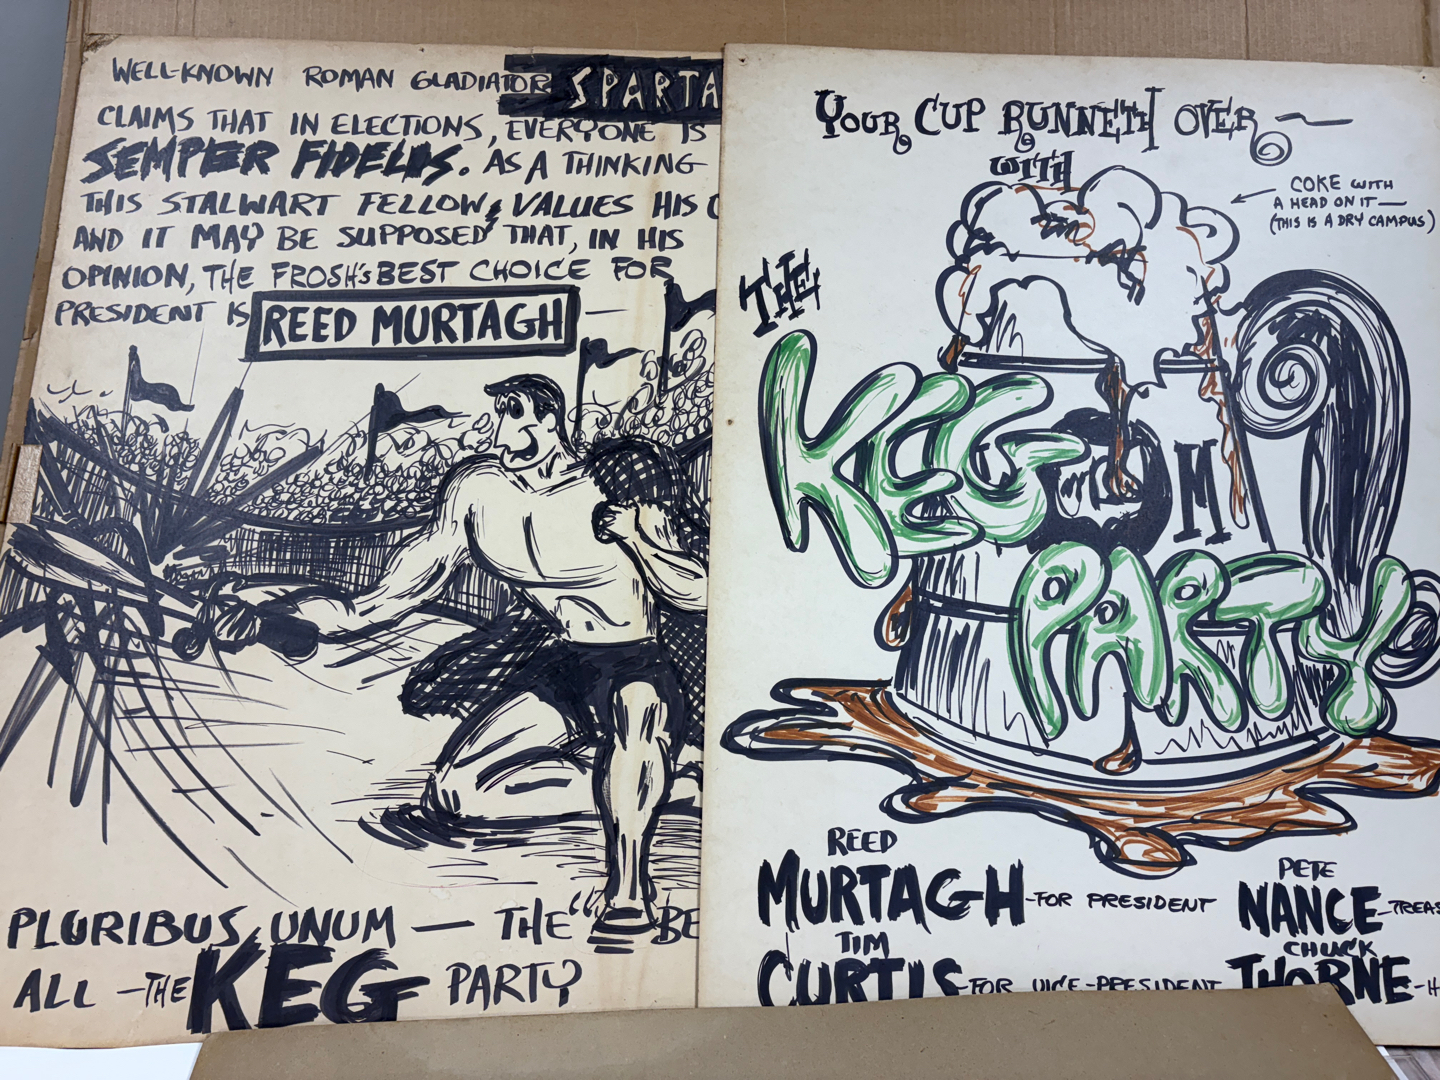 WELL-KNOWN ROMAN GLADIATOR SPARTA
CLAIMS THAT IN ELECTIONS, EVERYONE IS
SEMPER FIDELIS. AS A THINKING
THIS STALWART FELLOW, VALUES HIS
AND IT MAY BE SUPPOSED THAT, IN HIS
OPINION, THE FROSH'S BEST CHOICE FOR
PRESIDENT IS REED MURTAGH —
PLURIBUS UNUM — THE "BE
ALL — THE KEG PARTY
YOUR CUP RUNNETH OVER —
WITH
COKE WITH
A HEAD ON IT —
(THIS IS A DRY CAMPUS)
THE
KEG
M
PARTY
REED
MURTAGH - FOR PRESIDENT
TIM
CURTIS - FOR VICE-PRESIDENT
PETE
NANCE - TREAS
CHUCK
THORNE - H